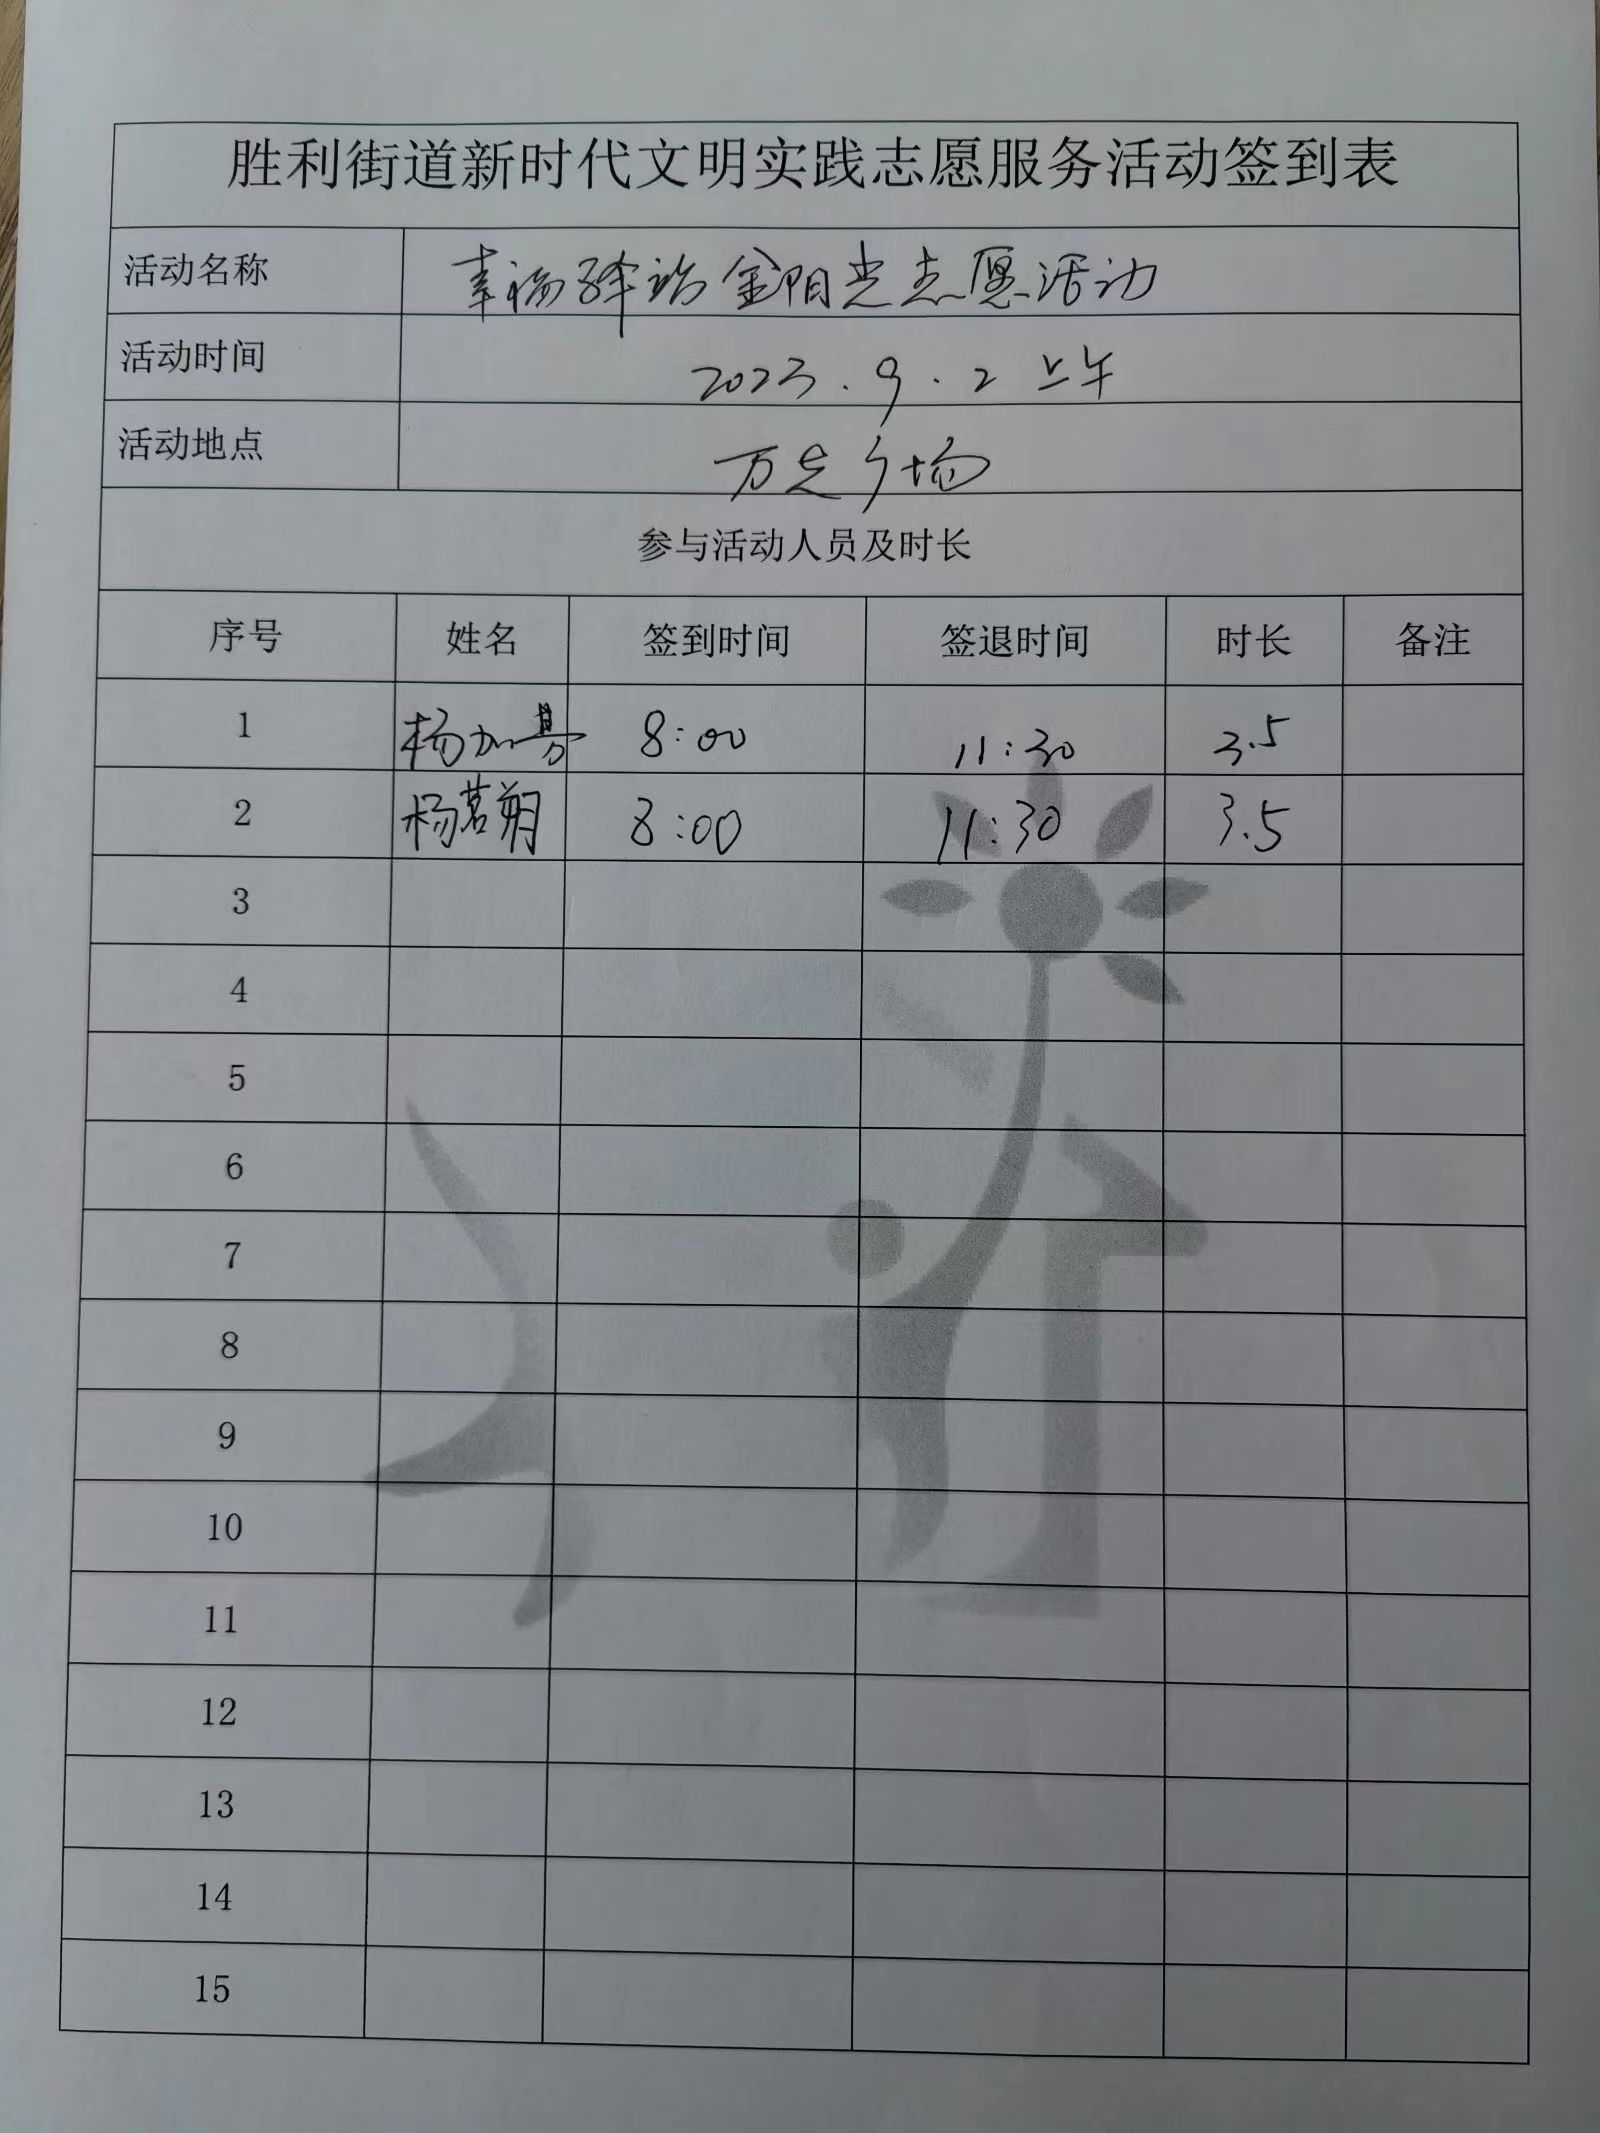 胜利街道新时代文明实践志愿服务活动签到表
活动名称 幸福驿站金阳光志愿活动
活动时间 2023.9.2 上午
活动地点 万达广场
参与活动人员及时长
序号 姓名 签到时间 签退时间 时长 备注
1 杨加 8:00 11:30 3.5
2 杨茗朔 8:00 11:30 3.5
3
4
5
6
7
8
9
10
11
12
13
14
15